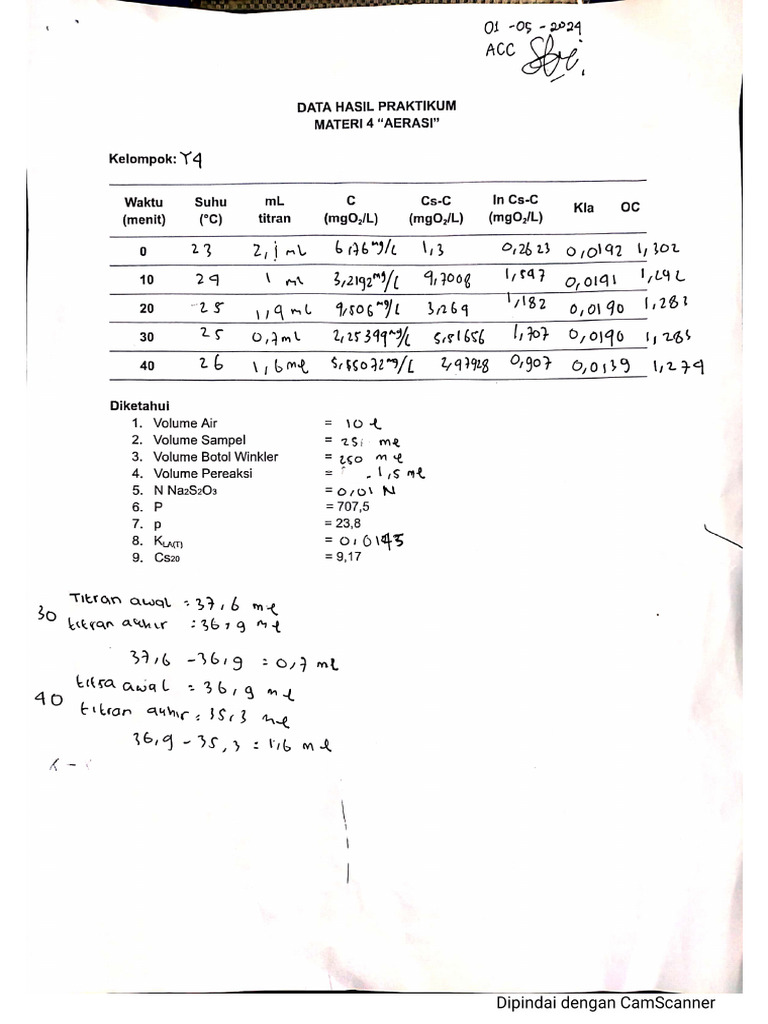 01-05-2024
ACC
DATA HASIL PRAKTIKUM
MATERI 4 “AERASI”
Kelompok: Y4
Waktu (menit) Suhu (°C) mL titran C (mgO₂/L) Cs-C (mgO₂/L) In Cs-C (mgO₂/L) Kla OC
0 23 2,1 mL 6,76 mg/L 1,3 0,2623 0,0192 1,302
10 24 1 mL 3,2192 mg/L 4,7008 1,547 0,0191 1,292
20 25 1,9 mL 3,269 1,182 0,0190 1,283
30 25 0,7 mL 2,25399 mg/L 5,51656 1,707 0,0190 1,283
40 26 1,6 ml 5,55072 mg/L 2,97928 0,907 1,274
Diketahui
1. Volume Air = 10 l
2. Volume Sampel = 25 ml
3. Volume Botol Winkler = 250 ml
4. Volume Pereaksi = 1,5 ml
5. N Na₂S₂O₃ = 0,01 N
6. P = 707,5
7. p = 23,8
8. KLA(T) = 0,0145
9. Cs20 = 9,17
Titran awal = 37,6 ml
30 titran akhir = 36,9 ml
37,6 - 36,9 = 0,7 ml
titra awal = 36,9 ml
40 titran akhir = 35,3 ml
36,9 - 35,3 = 1,6 ml
Dipindai dengan CamScanner